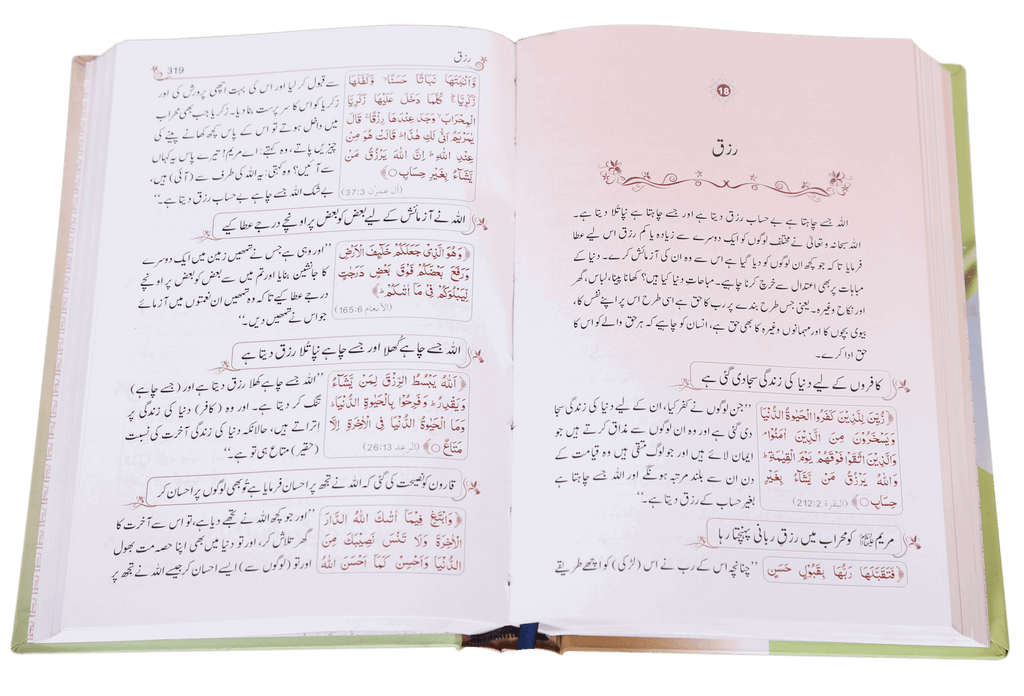 18
رزق
اللہ جسے چاہتا ہے بے حساب رزق دیتا ہے اور جسے چاہتا ہے نپا تلا دیتا ہے۔
اللہ سبحانہ و تعالیٰ نے مختلف لوگوں کو ایک دوسرے سے زیادہ یا کم رزق اس لیے عطا
فرمایا تاکہ جو کچھ ان لوگوں کو دیا گیا ہے اس سے وہ ان کی آزمائش کرے۔ دنیا کے
مباحات پر بھی اعتدال سے خرچ کرنا چاہیے۔ مباحات دنیا کیا ہیں؟ کھانا پینا، لباس، گھر
اور نکاح وغیرہ۔ یعنی جس طرح بندے پر رب کا حق ہے اسی طرح اس پر اپنے نفس کا،
بیوی بچوں کا اور مہمانوں وغیرہ کا بھی حق ہے، انسان کو چاہیے کہ ہر حق والے کو اس کا
حق ادا کرے۔
کافروں کے لیے دنیا کی زندگی سجا دی گئی ہے
زُيِّنَ لِلَّذِيْنَ كَفَرُوا الْحَيٰوةُ الدُّنْيَا
وَيَسْخَرُوْنَ مِنَ الَّذِيْنَ اٰمَنُوْا ۘ
وَالَّذِيْنَ اتَّقَوْا فَوْقَهُمْ يَوْمَ الْقِيٰمَةِ ؕ
وَاللّٰهُ يَرْزُقُ مَنْ يَّشَآءُ بِغَيْرِ
حِسَابٍ ○ (البقرة 212:2)
”جن لوگوں نے کفر کیا، ان کے لیے دنیا کی زندگی سجا
دی گئی ہے اور وہ ان لوگوں سے مذاق کرتے ہیں جو
ایمان لائے ہیں اور جو لوگ متقی ہیں وہ قیامت کے
دن ان سے بلند مرتبہ ہونگے اور اللہ جسے چاہتا ہے
بغیر حساب کے رزق دیتا ہے۔“
مریم علیہا السلام کو محراب میں رزق ربانی پہنچتا رہا
فَتَقَبَّلَهَا رَبُّهَا بِقَبُوْلٍ حَسَنٍ
”چنانچہ اس کے رب نے اس (لڑکی) کو اچھے طریقے
رزق
319
وَّاَنْۢبَتَهَا نَبَاتًا حَسَنًا ۙ وَّكَفَّلَهَا
زَكَرِيَّا ؕ كُلَّمَا دَخَلَ عَلَيْهَا زَكَرِيَّا
الْمِحْرَابَ ۙ وَجَدَ عِنْدَهَا رِزْقًا ۚ قَالَ
يٰمَرْيَمُ اَنّٰى لَكِ هٰذَا ؕ قَالَتْ هُوَ مِنْ
عِنْدِ اللّٰهِ ؕ اِنَّ اللّٰهَ يَرْزُقُ مَنْ
يَّشَآءُ بِغَيْرِ حِسَابٍ ○
(آل عمرٰن 37:3)
سے قبول کر لیا اور اس کی بہت اچھی پرورش کی اور
زکریا کو اس کا سرپرست بنا دیا۔ زکریا جب بھی محراب
میں داخل ہوتے تو اس کے پاس کچھ کھانے پینے کی
چیزیں پاتے، وہ کہتے: اے مریم! تیرے پاس یہ کہاں
سے آئیں؟ وہ کہتی: یہ اللہ کی طرف سے (آئی) ہیں،
بے شک اللہ جسے چاہے بے حساب رزق دیتا ہے۔“
اللہ نے آزمائش کے لیے بعض کو بعض پر اونچے درجے عطا کیے
وَهُوَ الَّذِيْ جَعَلَكُمْ خَلٰٓئِفَ الْاَرْضِ
وَرَفَعَ بَعْضَكُمْ فَوْقَ بَعْضٍ دَرَجٰتٍ
لِّيَبْلُوَكُمْ فِيْ مَآ اٰتٰىكُمْ ؕ
(الأنعام 165:6)
”اور وہی ہے جس نے تمھیں زمین میں ایک دوسرے
کا جانشین بنایا اور تم میں سے بعض کو بعض پر اونچے
درجے عطا کیے تاکہ وہ تمھیں ان نعمتوں میں آزمائے
جو اس نے تمھیں دیں۔“
اللہ جسے چاہے کُھلا اور جسے چاہے نپا تلا رزق دیتا ہے
اَللّٰهُ يَبْسُطُ الرِّزْقَ لِمَنْ يَّشَآءُ
وَيَقْدِرُ ؕ وَفَرِحُوْا بِالْحَيٰوةِ الدُّنْيَا ؕ
وَمَا الْحَيٰوةُ الدُّنْيَا فِي الْاٰخِرَةِ اِلَّا
مَتَاعٌ ○ (الرعد 26:13)
”اللہ جسے چاہے کھلا رزق دیتا ہے اور (جسے چاہے)
تنگ کر دیتا ہے۔ اور وہ (کافر) دنیا کی زندگی پر
اتراتے ہیں، حالانکہ دنیا کی زندگی آخرت کی نسبت
(حقیر) متاع ہی تو ہے۔“
قارون کو نصیحت کی گئی کہ اللہ نے تجھ پر احسان فرمایا ہے تُو بھی لوگوں پر احسان کر
وَابْتَغِ فِيْمَآ اٰتٰىكَ اللّٰهُ الدَّارَ
الْاٰخِرَةَ وَلَا تَنْسَ نَصِيْبَكَ مِنَ
الدُّنْيَا وَاَحْسِنْ كَمَآ اَحْسَنَ اللّٰهُ
”اور جو کچھ اللہ نے تجھے دیا ہے، تو اس سے آخرت کا
گھر تلاش کر، اور تو دنیا میں بھی اپنا حصہ مت بھول
اور تو (لوگوں سے) ایسے احسان کر جیسے اللہ نے تجھ پر